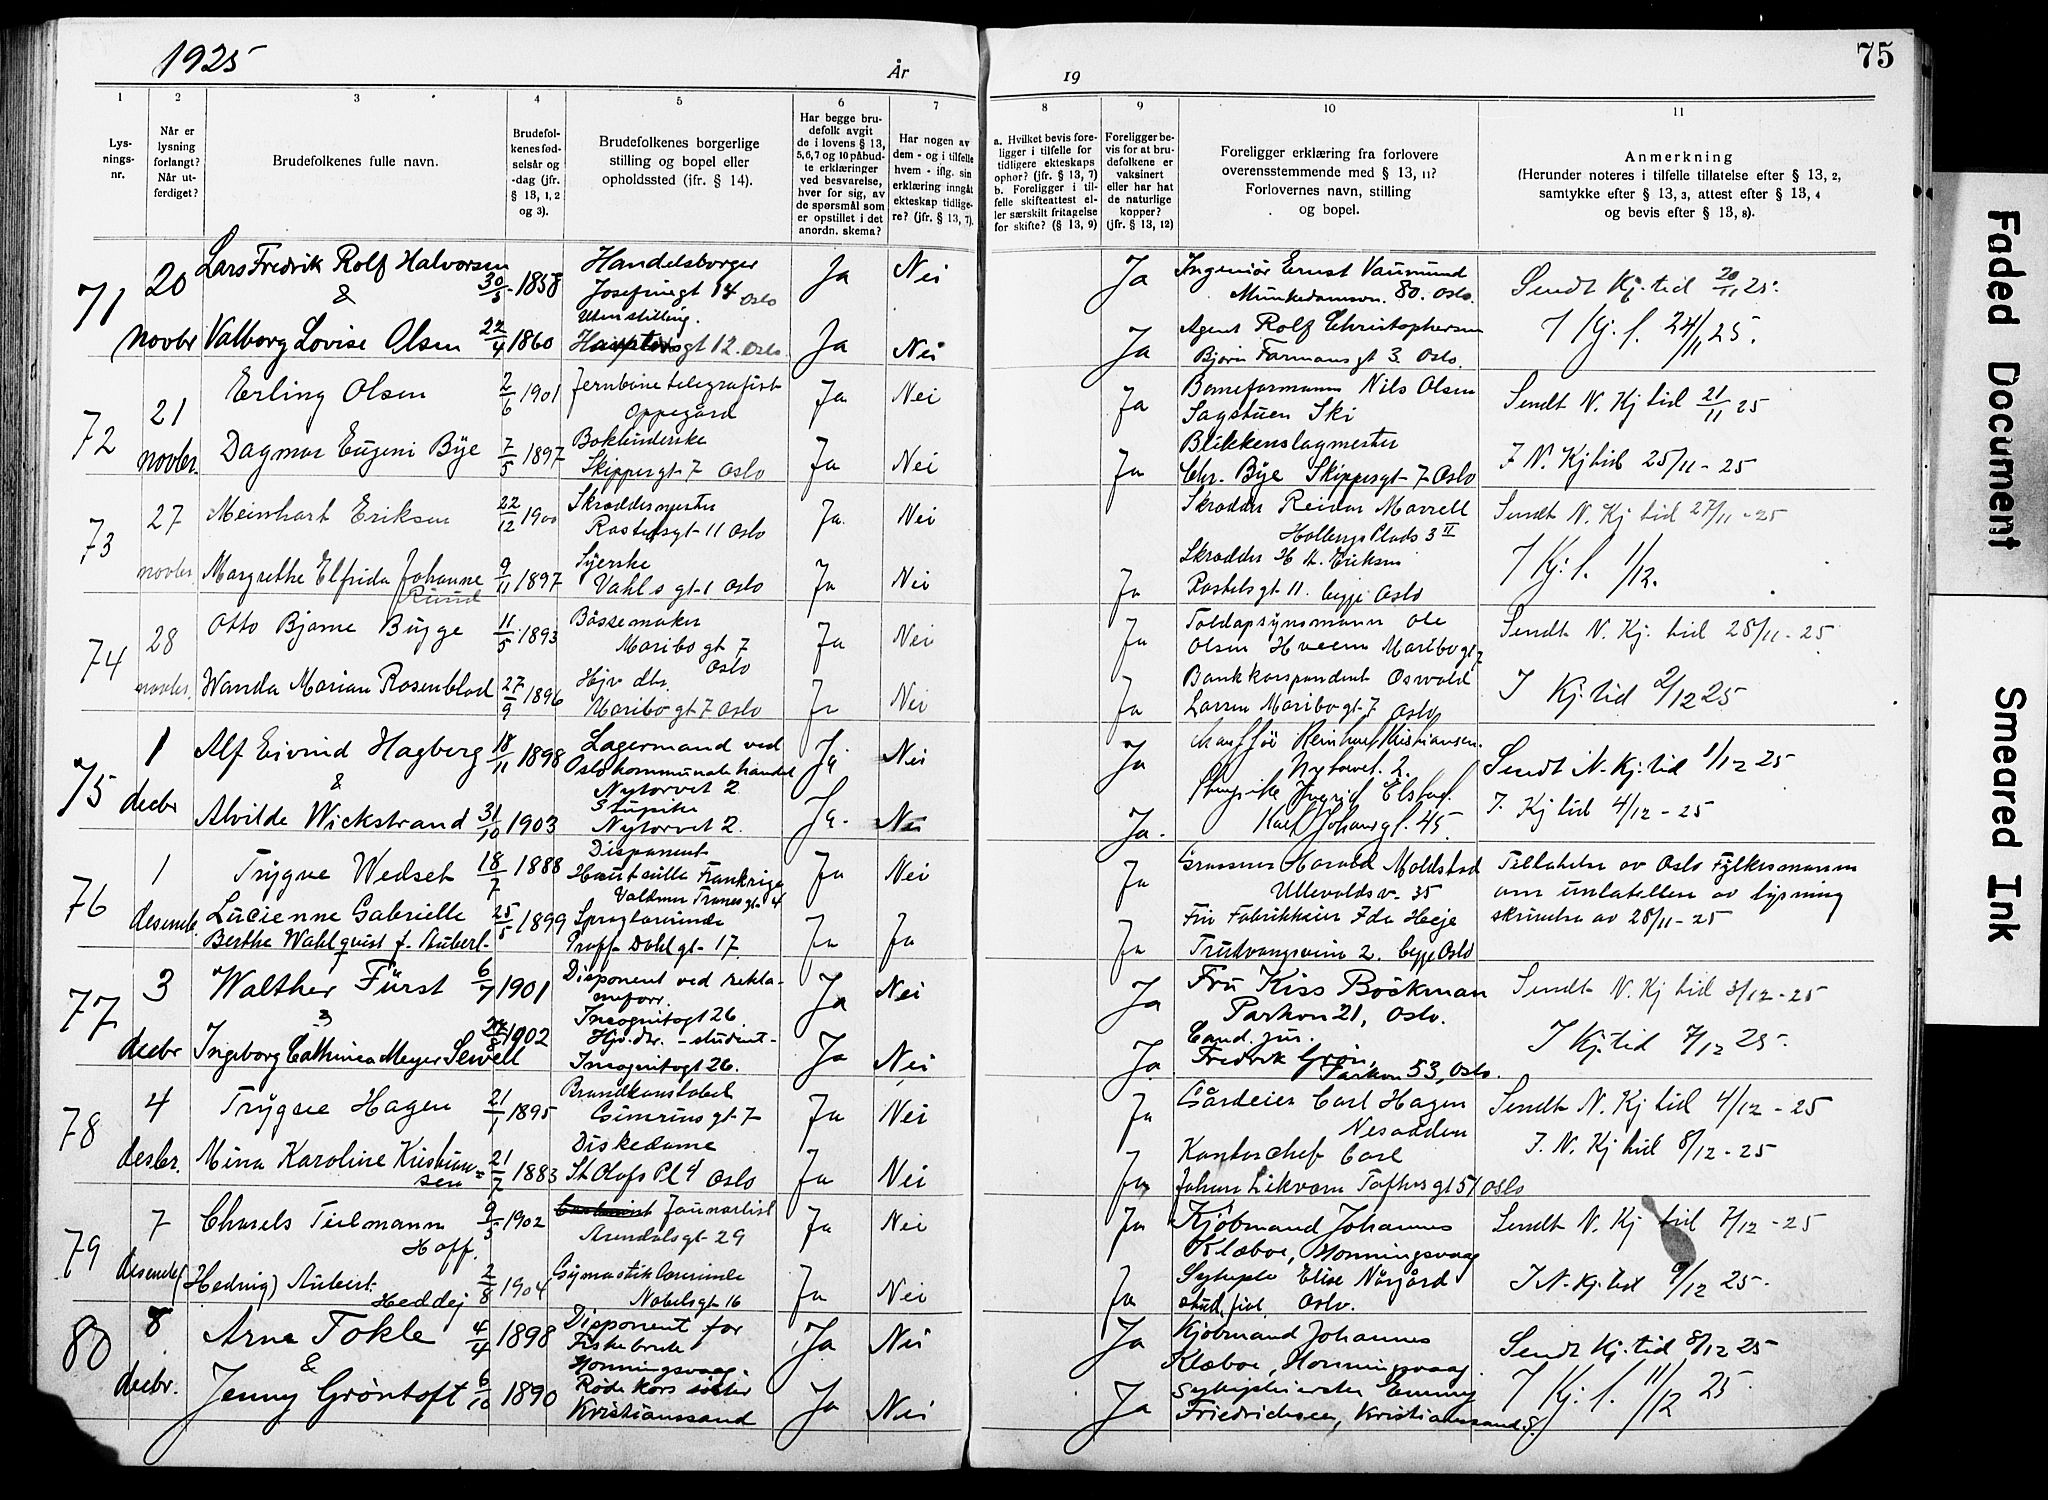 1925
År
19
75
1
2
3
4
5
6
7
8
9
10
11
Lys-
nings-
nr.
Når er
lysning
forlangt?
Når ut-
ferdiget?
Brudefolkenes fulle navn.
Brudefol-
kenes fød-
selsår og
-dag (jfr.
§ 13, 1, 2
og 3).
Brudefolkenes borgerlige
stilling og bopel eller
opholdssted (ifr. § 14).
Har begge bru-
defolk avgit
de i lovens § 13,
5, 6, 7 og 10 påbud-
te erklæringer
ved besvarelse,
hver for sig, av
de spørsmål som
er opstillet i det
anordn. skema?
Har nogen av
dem - og i tilfelle
hvem - iflg. sin
erklæring inngåt
ekteskap tidlige-
re? (jfr. § 13, 7).
a. Hvilket bevis fore-
ligger i tilfelle for
tidligere ekteskaps
ophør? (jfr. § 13, 7)
b. Foreligger i til-
felle skifteattest el-
ler særskilt fritagelse
for skifte? (§ 13, 9)
Foreligger be-
vis for at bru-
defolkene er
vaksinert
eller har hat
de naturlige
kopper?
(jfr. § 13, 12)
Foreligger erklæring fra forlovere
overensstemmende med § 13, 11?
Forlovernes navn, stilling
og bopel.
Anmerkning
(Herunder noteres i tilfelle tillatelse efter § 13, 2,
samtykke efter § 13, 3, attest efter § 13, 4
og bevis efter § 13, 8).
71
20
novbr
Lars Fredrik Rolf Halvorsen
&
30/5 1858
Handelsborger
Josefinegt 14 Oslo
Ja
Nei
Ja
Ingeniør Ernst
Munkedamsv. 80. Oslo.
Sendt Kj. tid 20/11 25.
Valborg Lovise Olsen
22/4 1860
Uten stilling.
gt 12. Oslo
Ja
Nei
Ja
Agent Rolf Christophersen
Bjørn Farmans gt 3. Oslo.
I Kj. t. 24/11 25.
72
21
novbr.
Erling Olsen
2/6 1901
Jernbanetelegrafist
Oppegård
Ja
Nei
Ja
Baneformann Nils Olsen
Sagstuen Ski
Sendt N. Kj tid 21/11 25
Dagmar Eugeni Bye
7/5 1897
Bokbinderske
Skippergt 7 Oslo
Ja
Nei
Ja
Blikkenslagmester
Chr. Bye Skippergt 7 Oslo
I N. Kj tid 25/11 - 25
73
27
novbr.
Meinhart Eriksen
22/12 1900
Skreddermester
gt 11 Oslo
Ja.
Nei
Skredder Reidar
Holbergs Plads 3 II
Sendt N. Kj tid 27/11 - 25
Margrethe Elfrida Johanne
Ruud
9/11 1897
Syerske
Vahls gt 1 Oslo
Ja
Nei
Ja
Skredder H. Eriksen
gt 11. begge Oslo
I Kj. t. 1/12.
74
28
novbr.
Otto Bjarne Bugge
11/5 1893
Bøssemaker
Maribo gt 7
Oslo
Ja
Nei
Ja
Toldopsynsmann Ole
Olsen Hveem Maribogt 7
Sendt N. Kj. tid 28/11 - 25
Wanda Marian Rosenblad
27/9 1896
Hjv. dtr.
Maribo gt 7 Oslo
Ja
Nei
Ja
Bankkorspondent Oswald
Larsen Maribo gt 7 Oslo
I Kj. tid 2/12 25
75
1
decbr
Alf Eivind Hagberg
&
18/11 1898
Lagermand ved
Oslo kommunale handel
Nytorvet 2
Ja
Nei
Ja
Reinhart Kristiansen.
Nytorvet. 2.
Sendt N. Kj. tid 1/12 25
Alvilde Wickstrand
31/10 1903
Stupike
Nytorvet 2.
Ja.
Nei
Ja.
Ingrid Elstad.
Karl Johansgt. 45.
I. Kj tid 4/12 - 25
76
1
desembr.
Trygve Wedset
18/7 1888
Disponent
Frankrige
Valdemar Tranes gt 4
Ja
Nei
Ja
Grosserer Harald Moldstad
Ullevoldsv. 35
Tillatelse av Oslo Fylkesmann
om unlatelse av lysning
skrivelse av 28/11 - 25
Lucienne Gabrielle
Berthe Wahlquist f. Aubert.
25/5 1899
Sproglærerinde
Proff. Dahlgt. 17.
Ja
Ja
Ja
Fru Fabrikkeier Ida Heje
Trudvangveien 2. begge Oslo
77
3
decbr
Walther Fürst
&
6/7 1901
Disponent ved rekla-
meforr.
Incognitogt 26
Ja
Nei
Ja
Fru Kiss Böckman
Parkvn 21, Oslo.
Sendt N. Kj tid 3/12 - 25
Ingeborg Cathinca Meyer Sewell
1902
Hjv. dtr. - student -
Incognitogt 26.
Ja
Nei
Ja
Cand. jur.
Fredrik Grøn,
Parkvn 53, Oslo.
I Kj. tid 7/12 25.
78
4
desbr.
Trygve Hagen
21/1 1895
Brandkonstabel
gt 7
Ja
Nei
Ja
Gårdeier Carl Hagen
Nesodden
Sendt N. Kj tid 4/12 - 25
Mina Karoline Kristian-
sen
21/7 1883
Diskedame
St. Olafs Pl 4 Oslo
Ja
Nei
Ja
Kontorchef Carl
Johan Likvam Tofthes gt 51 Oslo
I. N. Kj tid 8/12 - 25
79
7
desembr
Charels Tielmann
Hoff.
9/3 1902
Journalist
Arendalsgt 29
Ja
Nei
Ja
Kjøbmand Johannes
Klæboe, Honningsvaag
Sendt N. Kj tid 7/12 - 25
(Hedvig) Aubert.
Heddej
2/8 1904
Gymnastiklærerinde
Nobelsgt 16
Ja
Nei
Ja
Elise Nårgård
stud. fil. Oslo.
I N. Kj. tid 9/12 25.
80
8
decbr.
Arne Tokle
&
4/4 1898
Disponent for
Fiskebruk
Honningsvaag.
Ja
Nei
Ja
Kjøbmand Johannes
Klæboe, Honningsvaag
Sendt Kj. tid 8/12 25
Jenny Grøntoft
6/10 1890
Røde kors søster
Kristianssand
Ja
Nei
Ja
Sykepleierske Emmy
Friedrichsen, Kristianssand S.
I Kj. t. 11/12 25
Faded Document
Smeared Ink